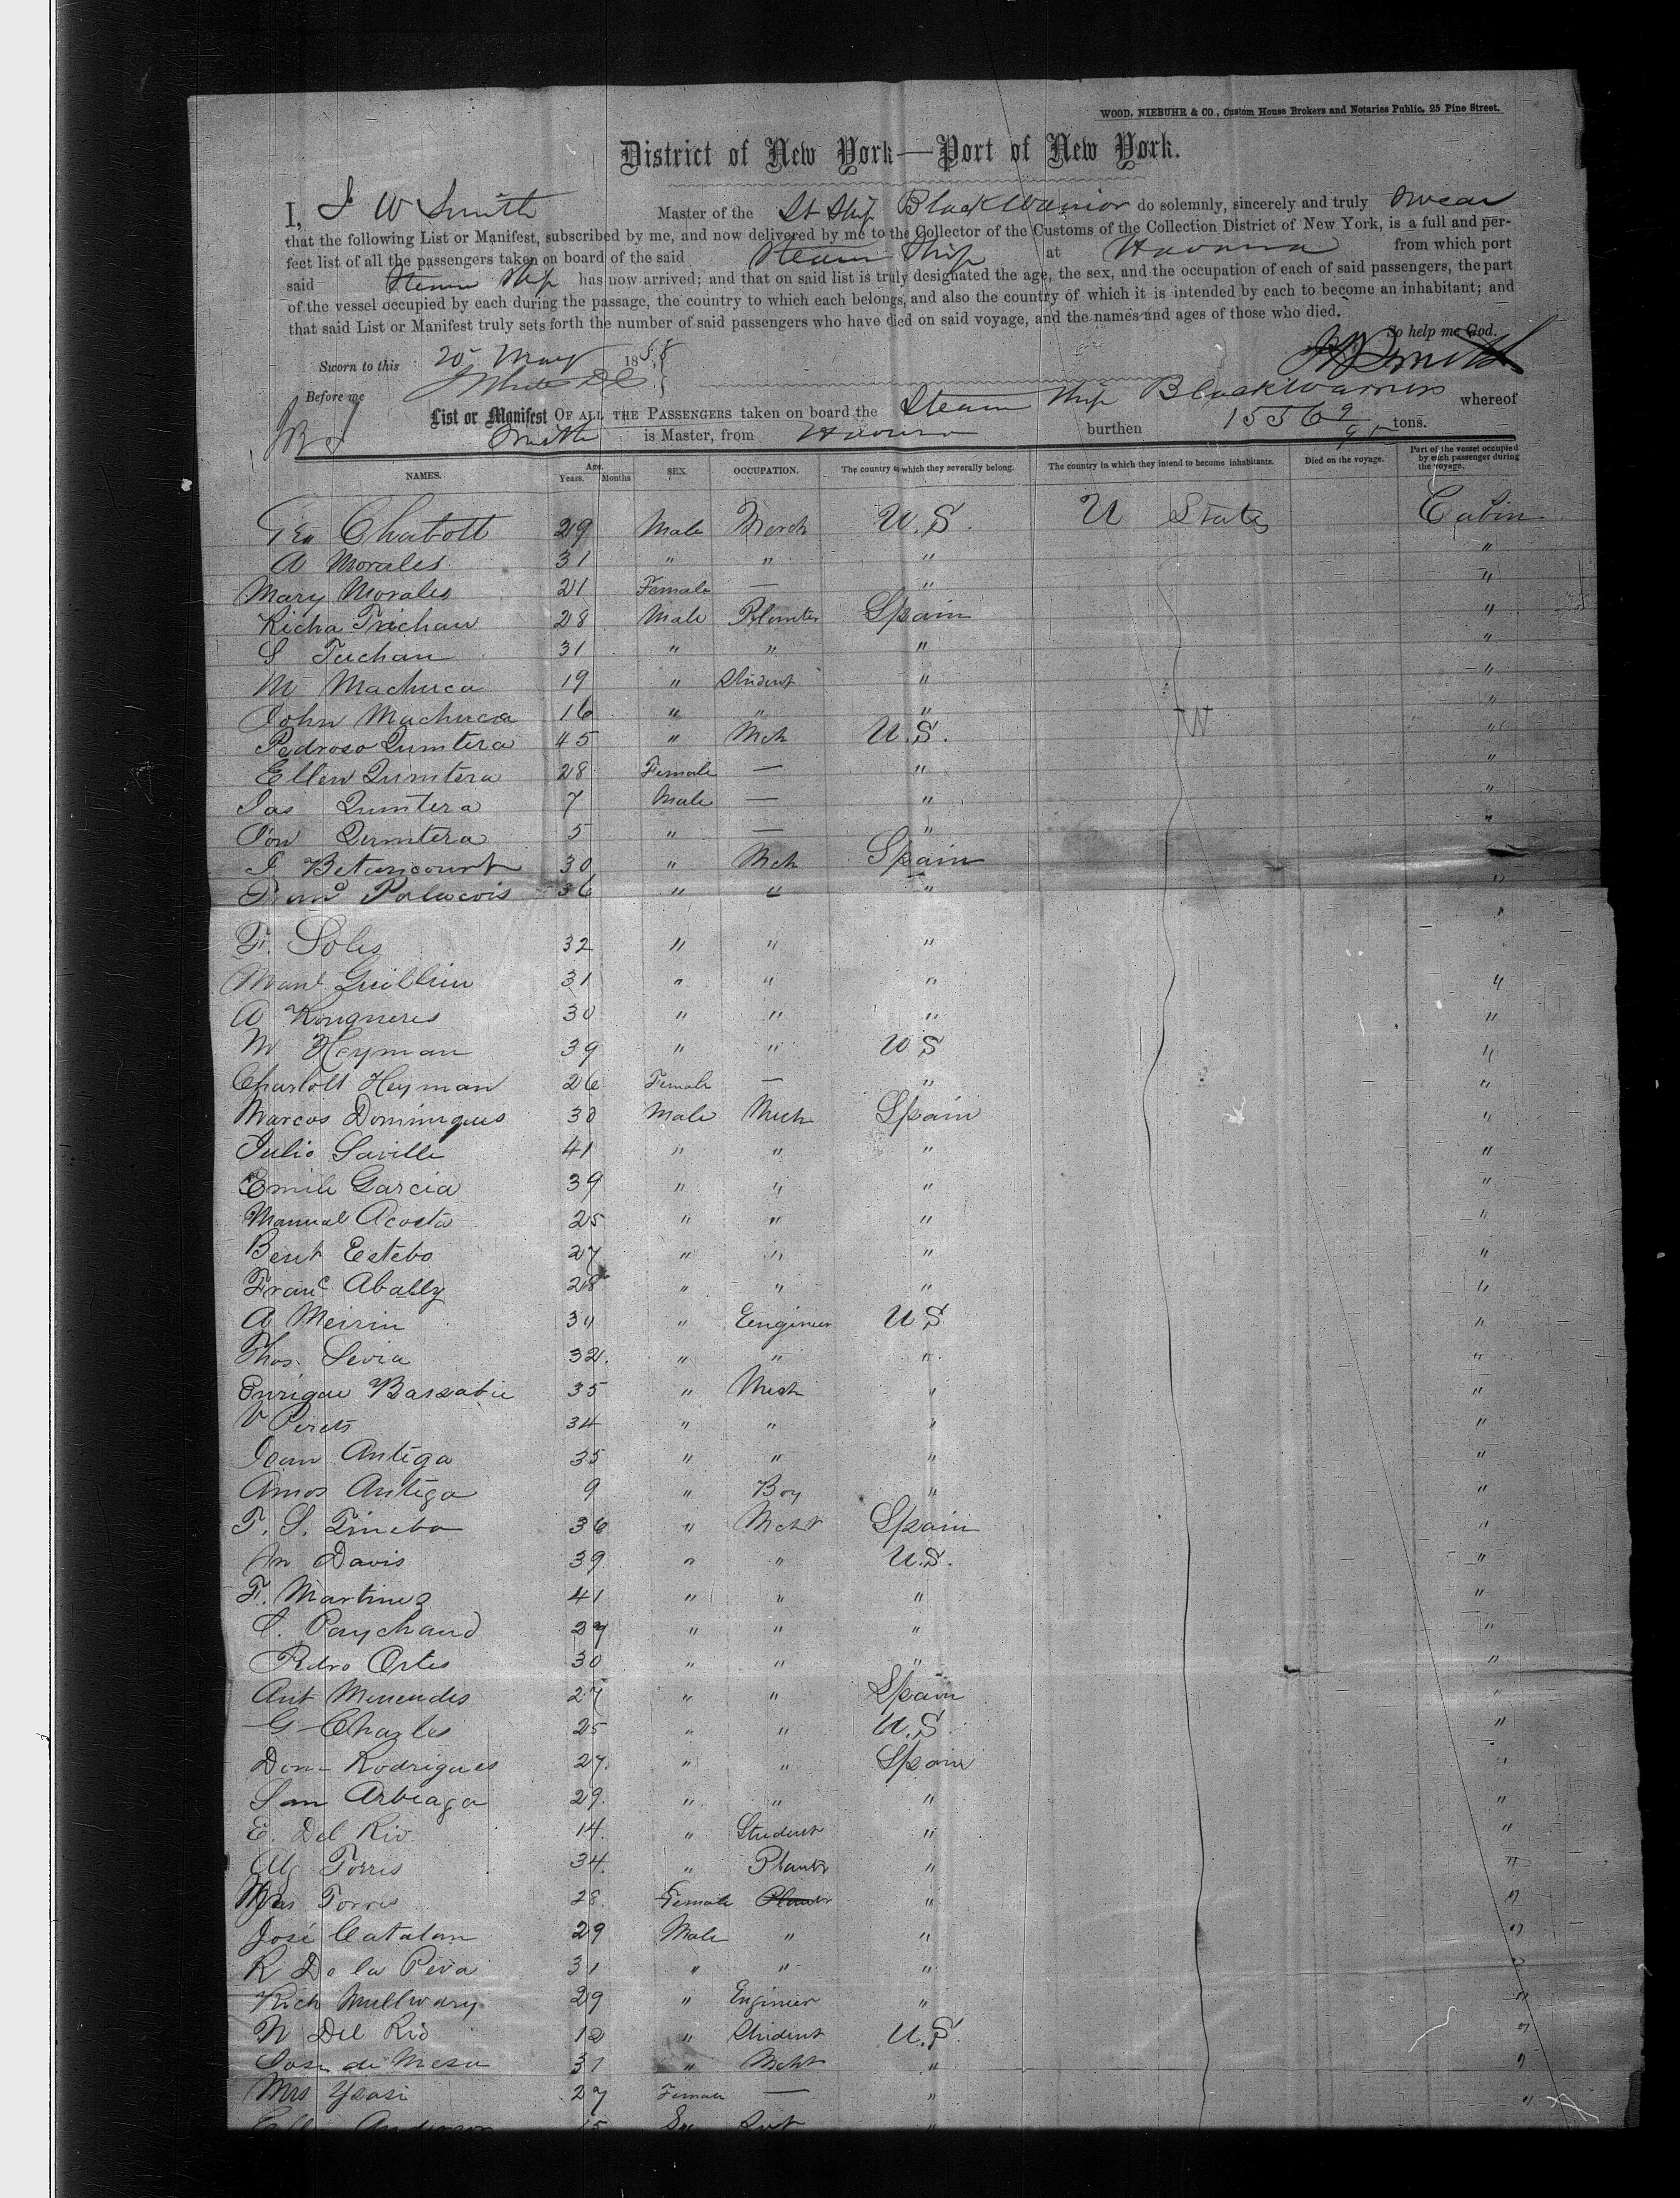 WOOD, NIEBUHR & CO., Custom House Brokers and Notaries Public, 25 Pine Street.
District of New York—Port of New York.
I, J W Smith Master of the St Ship Black Warrior do solemnly, sincerely and truly swear
that the following List or Manifest, subscribed by me, and now delivered by me to the Collector of the Customs of the Collection District of New York, is a full and per-
fect list of all the passengers taken on board of the said Steam Ship at Havana from which port
said Steam Ship has now arrived; and that on said list is truly designated the age, the sex, and the occupation of each of said passengers, the part
of the vessel occupied by each during the passage, the country to which each belongs, and also the country of which it is intended by each to become an inhabitant; and
that said List or Manifest truly sets forth the number of said passengers who have died on said voyage, and the names and ages of those who died.
So help me God.
Sworn to this 20 May 185 Smith
Before me
List or Manifest OF ALL THE PASSENGERS taken on board the Steam Ship Black Warrior whereof
Smith is Master, from Havana burthen 1556 9/95 tons.
NAMES. Age. Years. Months SEX. OCCUPATION. The country to which they severally belong. The country in which they intend to become inhabitants. Died on the voyage. Part of the vessel occupied by each passenger during the voyage.
Geo Chabott 29 Male Merch U.S. U States Cabin
A Morales 31 " " " "
Mary Morales 21 Female — " "
Richa Trichau 28 Male Planter Spain "
S Tuchau 31 " " " "
M Machuca 19 " Student " "
John Machuca 16 " " " "
Pedroso Quintera 45 " Mch U.S. "
Ellen Quintera 28 Female — " "
Jas Quintera 7 Male — " "
Quintera 5 " — " "
J Betancourt 30 " Mch Spain
Palacois 36 " " " "
F. Soles 32 " " "
Manl 31 " " " "
A Rongneres 30 " " " "
M Heyman 39 " " U S "
Charlott Heyman 26 Female — " "
Marcos Domingues 30 Male Mech Spain "
Julio Saville 41 " " " "
Emile Garcia 39 " " " "
Manual Acosta 25 " " " "
Bent Estebo 27 " " " "
Franc Abally 28 " " " "
A Meirin 30 " Eengineer U S "
Thos. Sevia 32. " " " "
Enrique Bassabie 35 " Mech " "
V Perets 34 " " " "
Jean Antega 35 " " " "
Amos Antega 9 " Boy " "
F. S. Tineba 36 " Mcht Spain "
Jn Davis 39 " " U.S. "
F. Martinez 41 " " " "
S. Paychaud 27 " " " "
Pedro Ortes 30 " " " "
Ant Menendes 27 " " Spain "
G Charles 25 " " U.S. "
Dom Rodrigues 27. " " Spain "
San Arteaga 29. " " " "
E. Del Rio 14. " Student " "
Alf Torres 34. " Plantr " "
Mrs Torres 28. Female Plantr " "
José Catalan 29 Male " " "
R De la Peña 31 " " " "
Rich Mullwary 29 " Enginier " "
N Del Rio 12 " Student U.S. "
Jose de Mesa 31 " Mcht " "
Mrs Ysasi 27 Female — " "
Anderson 15